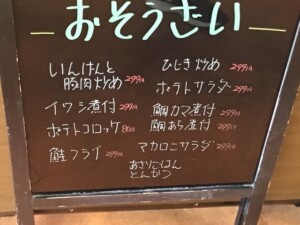 おそうざい
いんげんと
豚肉炒め 299円
イワシ煮付 299円
ポテトコロッケ 80円
鮭フライ 299円
ひじき炒め 299円
ポテトサラダ 299円
鯛カマ煮付 299円
鯛あら煮付 299円
マカロニサラダ 299円
あさりごはん
とんかつ